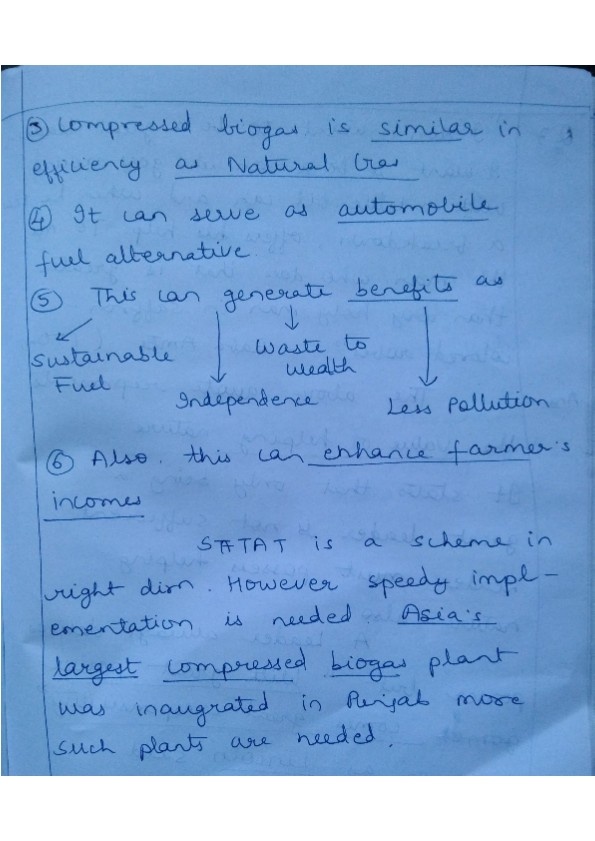 ③ Compressed biogas is similar in
efficiency as Natural Gas
④ It can serve as automobile
fuel alternative.
⑤ This can generate benefits as
Sustainable Fuel
Waste to Wealth
Independence
Less Pollution
⑥ Also. this can enhance farmer's
incomes
SATAT is a scheme in
right dirn. However speedy impl-
ementation is needed Asia's
largest compressed biogas plant
was inaugrated in Punjab more
such plants are needed.